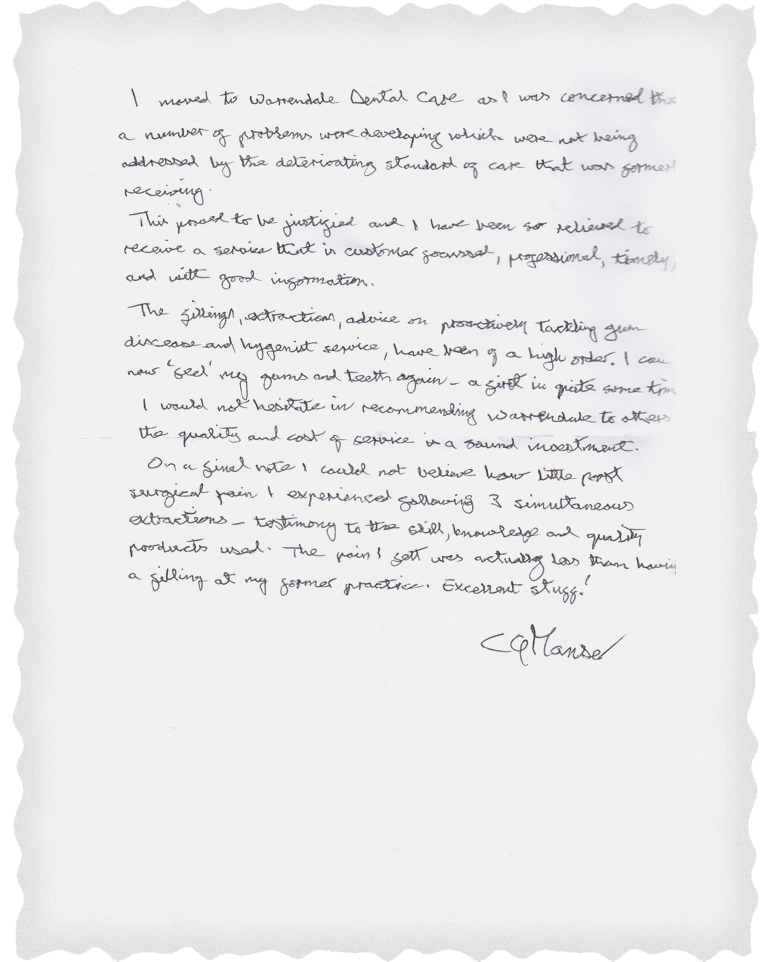 I moved to Warrendale Dental Care as I was concerned
a number of problems were developing which were not being
addressed by the deteriorating standard of care that was
receiving.
This proved to be justified and I have been so relieved to
receive a service that is customer focussed, professional, timely,
and with good information.
The fillings, extractions, advice on proactively tackling gum
disease and hygenist service, have been of a high order. I can
now 'feel' my gums and teeth again - a first in quite some
I would not hesitate in recommending Warrendale to others
the quality and cost of service is a sound investment.
On a final note I could not believe how little post
surgical pain I experienced following 3 simultaneous
extractions - testimony to the skill, knowledge and quality
products used. The pain I felt was actually less than
a filling at my former practice. Excellent stuff!